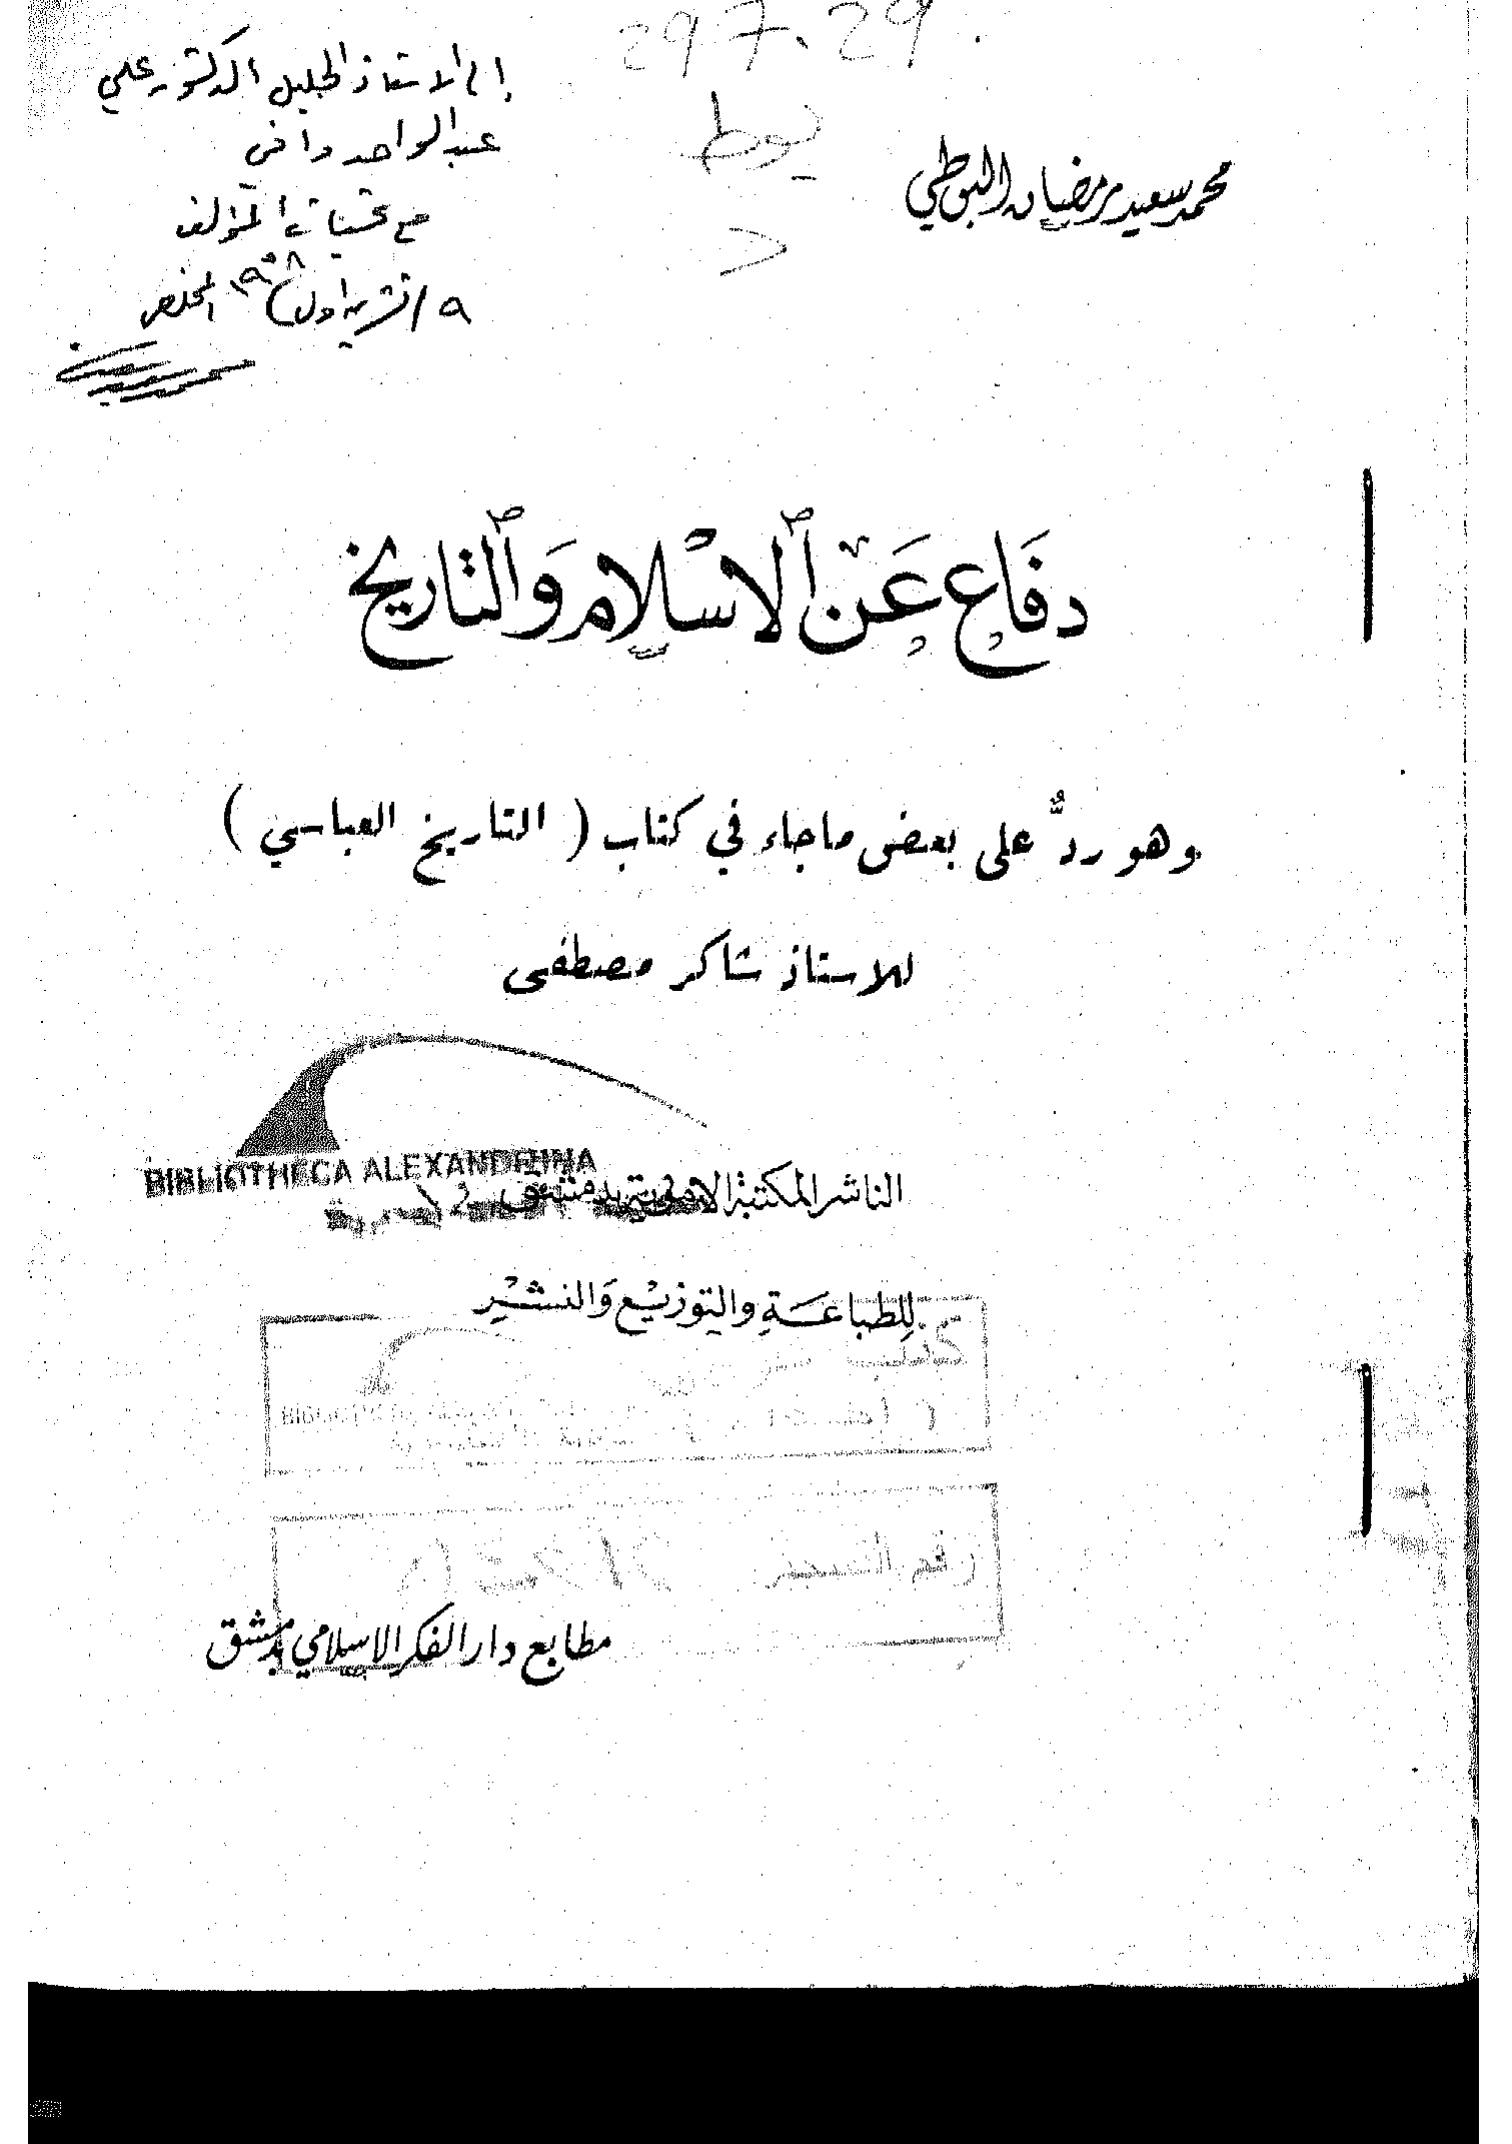 297.29
بوط
د
إلى الاستاذ الجليل الدكتور علي
عبد الواحد وافي
مع تحيات المؤلف
٩/تشرين اول/ ١٩٥٨ المخلص
محمد سعيد رمضان البوطي
دفَاع عَنْ ٱلاسْلام وَٱلتاريخ
وهو ردٌّ على بعض ماجاء في كتاب ( التاريخ العباسي )
للاستاذ شاكر مصطفى
BIBLIOTHECA ALEXANDRINA
الناشر المكتبة الاموية بدمشق
للِطباعَةِ والتوزيْع وَالنشْر
رقم التسجيل
مطابع دار الفكر الاسلامي بدمشق